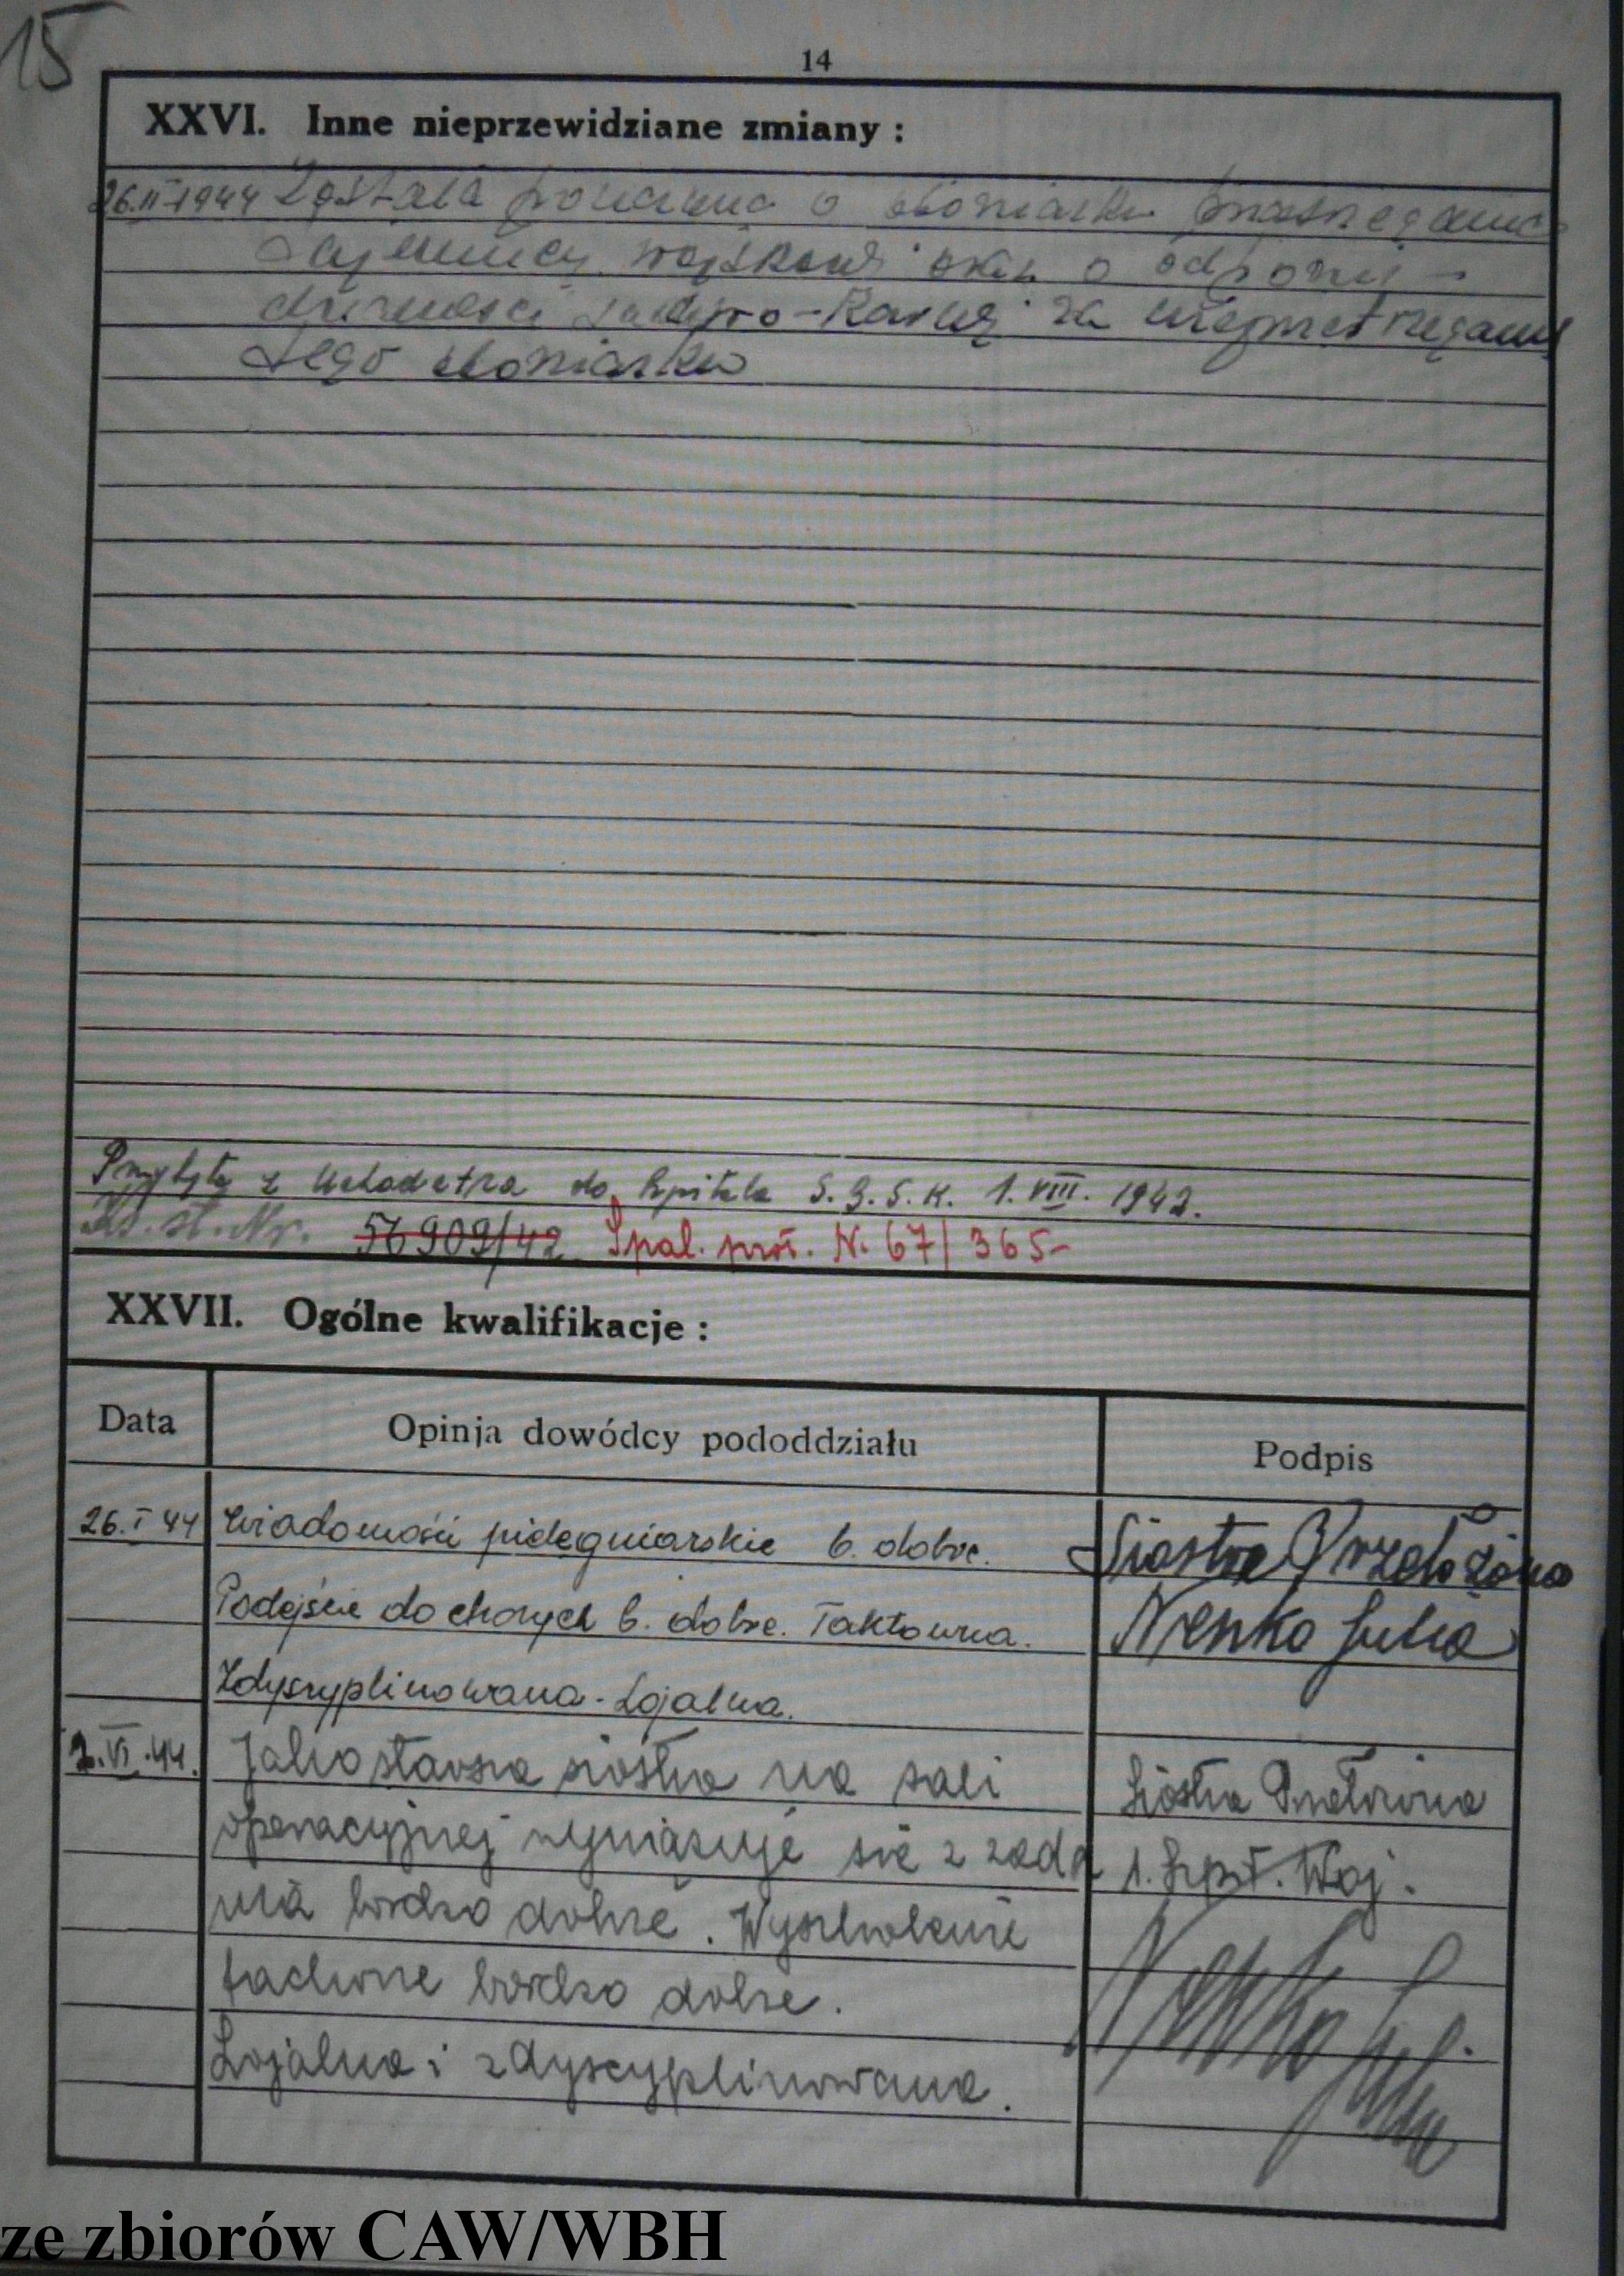 15
14
XXVI. Inne nieprzewidziane zmiany :
26.II-1944 Została pouczona o obowiązku przestrzegania
tajemnicy wojskowej oraz o odpowie-
dzialności sądowo-karnej za nieprzestrzeganie
tego obowiązku
Przybyła z do Szpitala S.B.S.K. 1. VIII. 1942.
56909/42 Spal. prot. N. 67/365-
XXVII. Ogólne kwalifikacje :
Data Opinja dowódcy pododdziału Podpis
26. I 44 Wiadomości pielęgniarskie b. dobre. Siostra Przełożona
Podejście do chorych b. dobre. Taktowna. Nenko Julia
Zdyscyplinowana. Lojalna.
2. VI. 44. Jako starsza siostra na sali Siostra Przełożona
operacyjnej wywiązuje się z zada 1. Szpit. Woj.
nia bardzo dobrze. Wyszkolenie
fachowe bardzo dobre. Nenko Julia
Lojalna i zdyscyplinowana.
ze zbiorów CAW/WBH